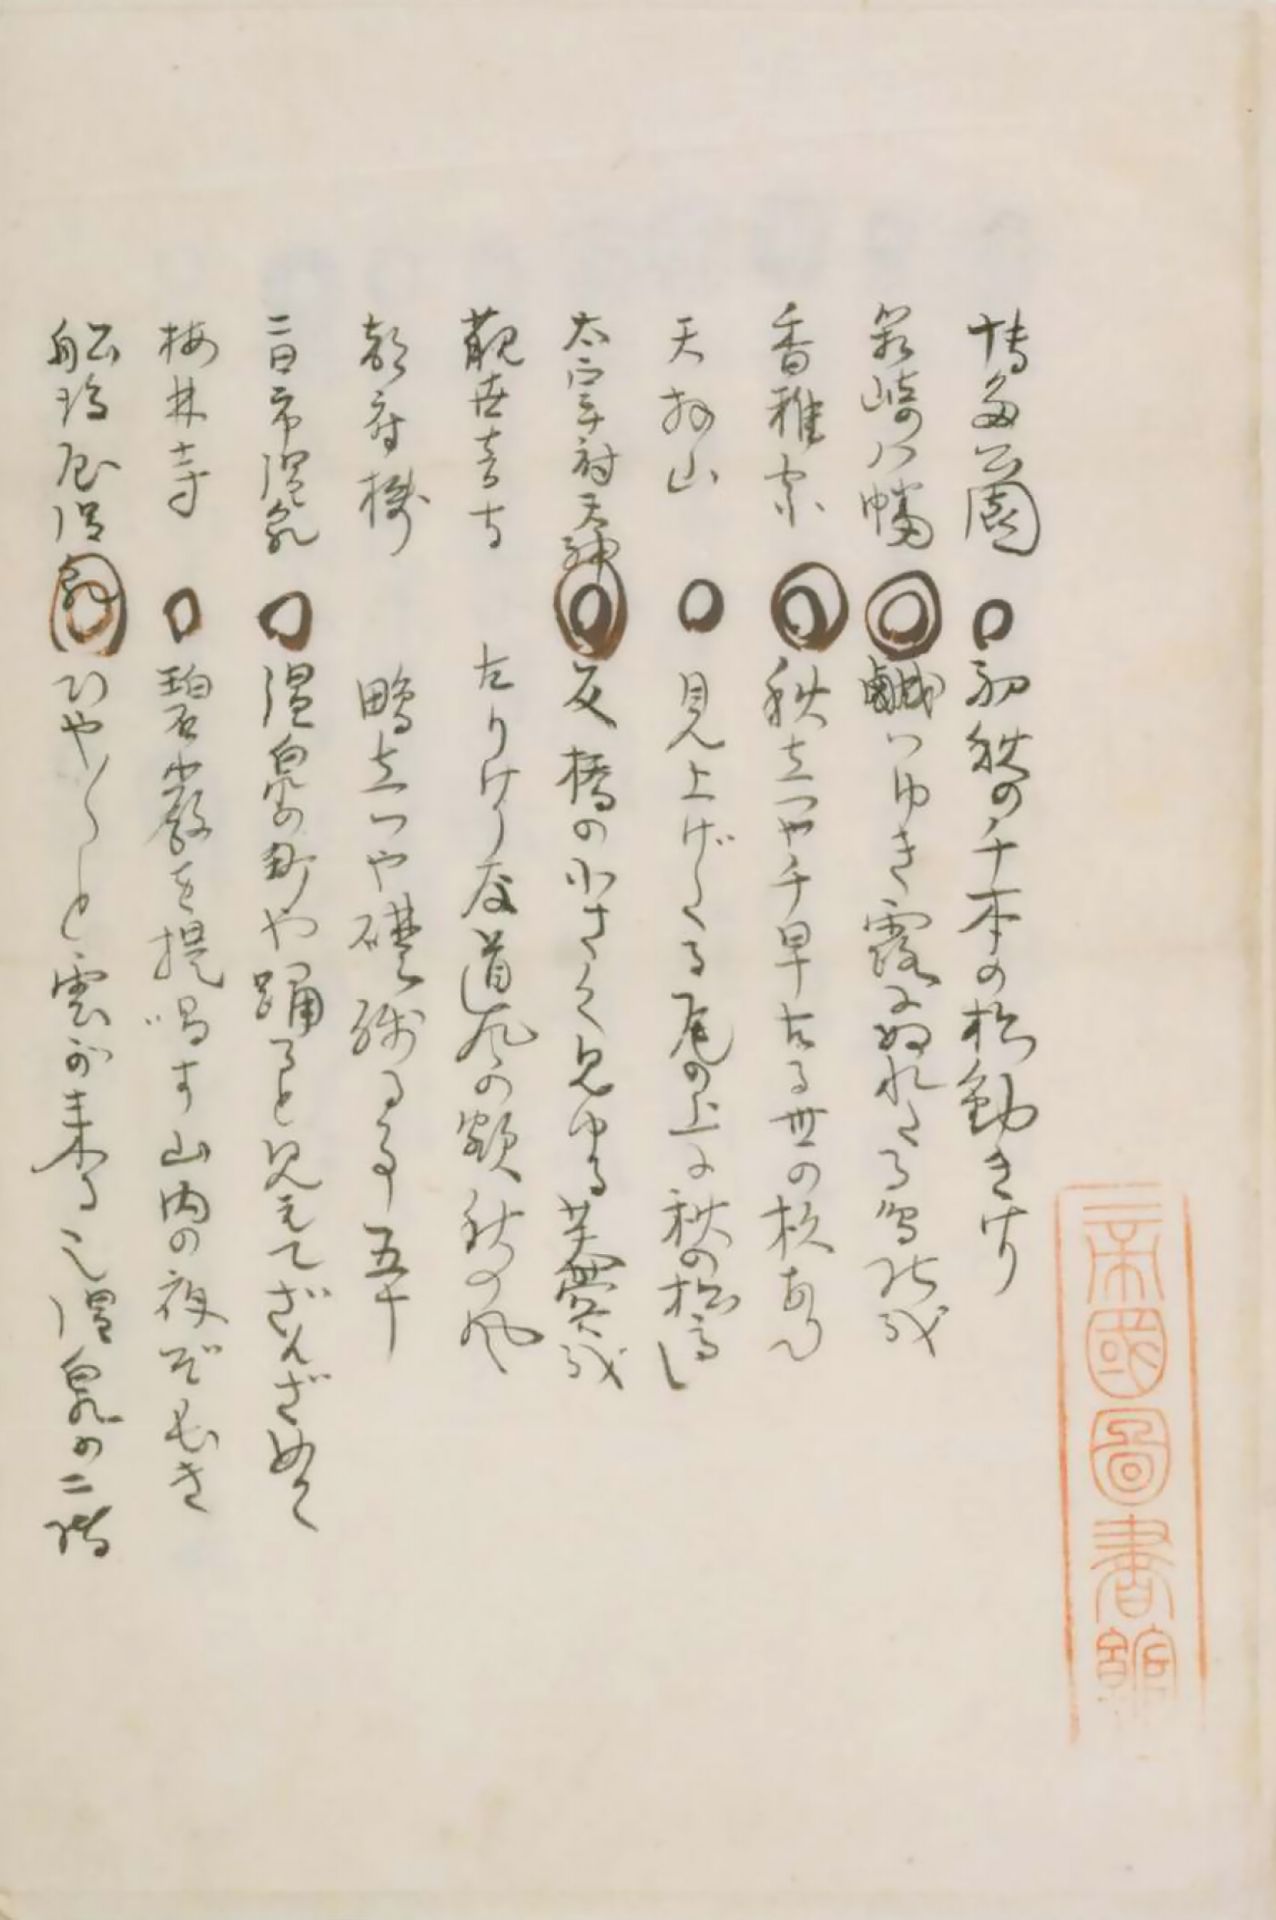 博多公園 初秋の千本の松動きけり
箱崎八幡 鹹はゆき露にぬれたる鳥居哉
香椎宮 秋立つや千早古る世の杉ありて
天拝山 見上げたる尾の上に秋の松高し
太宰府天神 反橋の小さく見ゆる芙蓉哉
観世音寺 古りけりな道風の額秋の風
都府楼 鴫立つや礎残る事五十
二日市温泉 温泉の町や踊ると見えてざんざめく
梅林寺 碧巌を提唱す山内の夜ぞ長き
船後屋温泉 ひや〳〵と雲が来る也温泉の二階
帝國圖書館